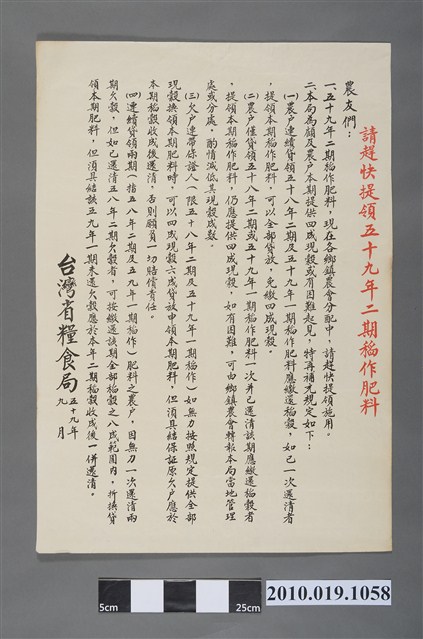 請趕快提領五十九年二期稻作肥料
農友們：
一、五十九年二期稻作肥料，現在各鄉鎮農會分配中，請趕快提領施用。
二、本局為顧及農户本期提供四成現穀或有困難起見，特再補充規定如下：
(一)農户連續貸領五十八年二期及五十九年一期稻作肥料應繳還稻穀，如已一次還清者
，提領本期稻作肥料，可以全部貸放，免繳四成現穀。
(二)農户僅貸領五十八年二期或五十九年一期稻作肥料一次并已還清該期應繳還稻穀者
，提領本期稻作肥料，仍應提供四成現穀，如有困難，可由鄉鎮農會轉報本局當地管理
處或分處，酌情減低其現穀成數。
(三)欠户連帶保證人(限五十八年二期及五十九年一期稻作)如無力按照規定提供全部
現穀換領本期肥料時，可以四成現穀六成貸放申領本期肥料，但須具結保証原欠户應於
本期稻穀收成後還清，否則願負一切賠償責任。
(四)連續貸領兩期(指五八年二期及五九年一期稻作)肥料之農户，因無力一次還清兩
期欠穀，但如已還清五八年二期欠穀者，可按繳還該期全部稻穀之八成範圍內，折換貸
領本期肥料，但須具結該五九年一期未還欠穀應於本年二期稻穀收成後一併還清。
台灣省糧食局
五十九年
九月
5cm
25cm
2010.019.1058